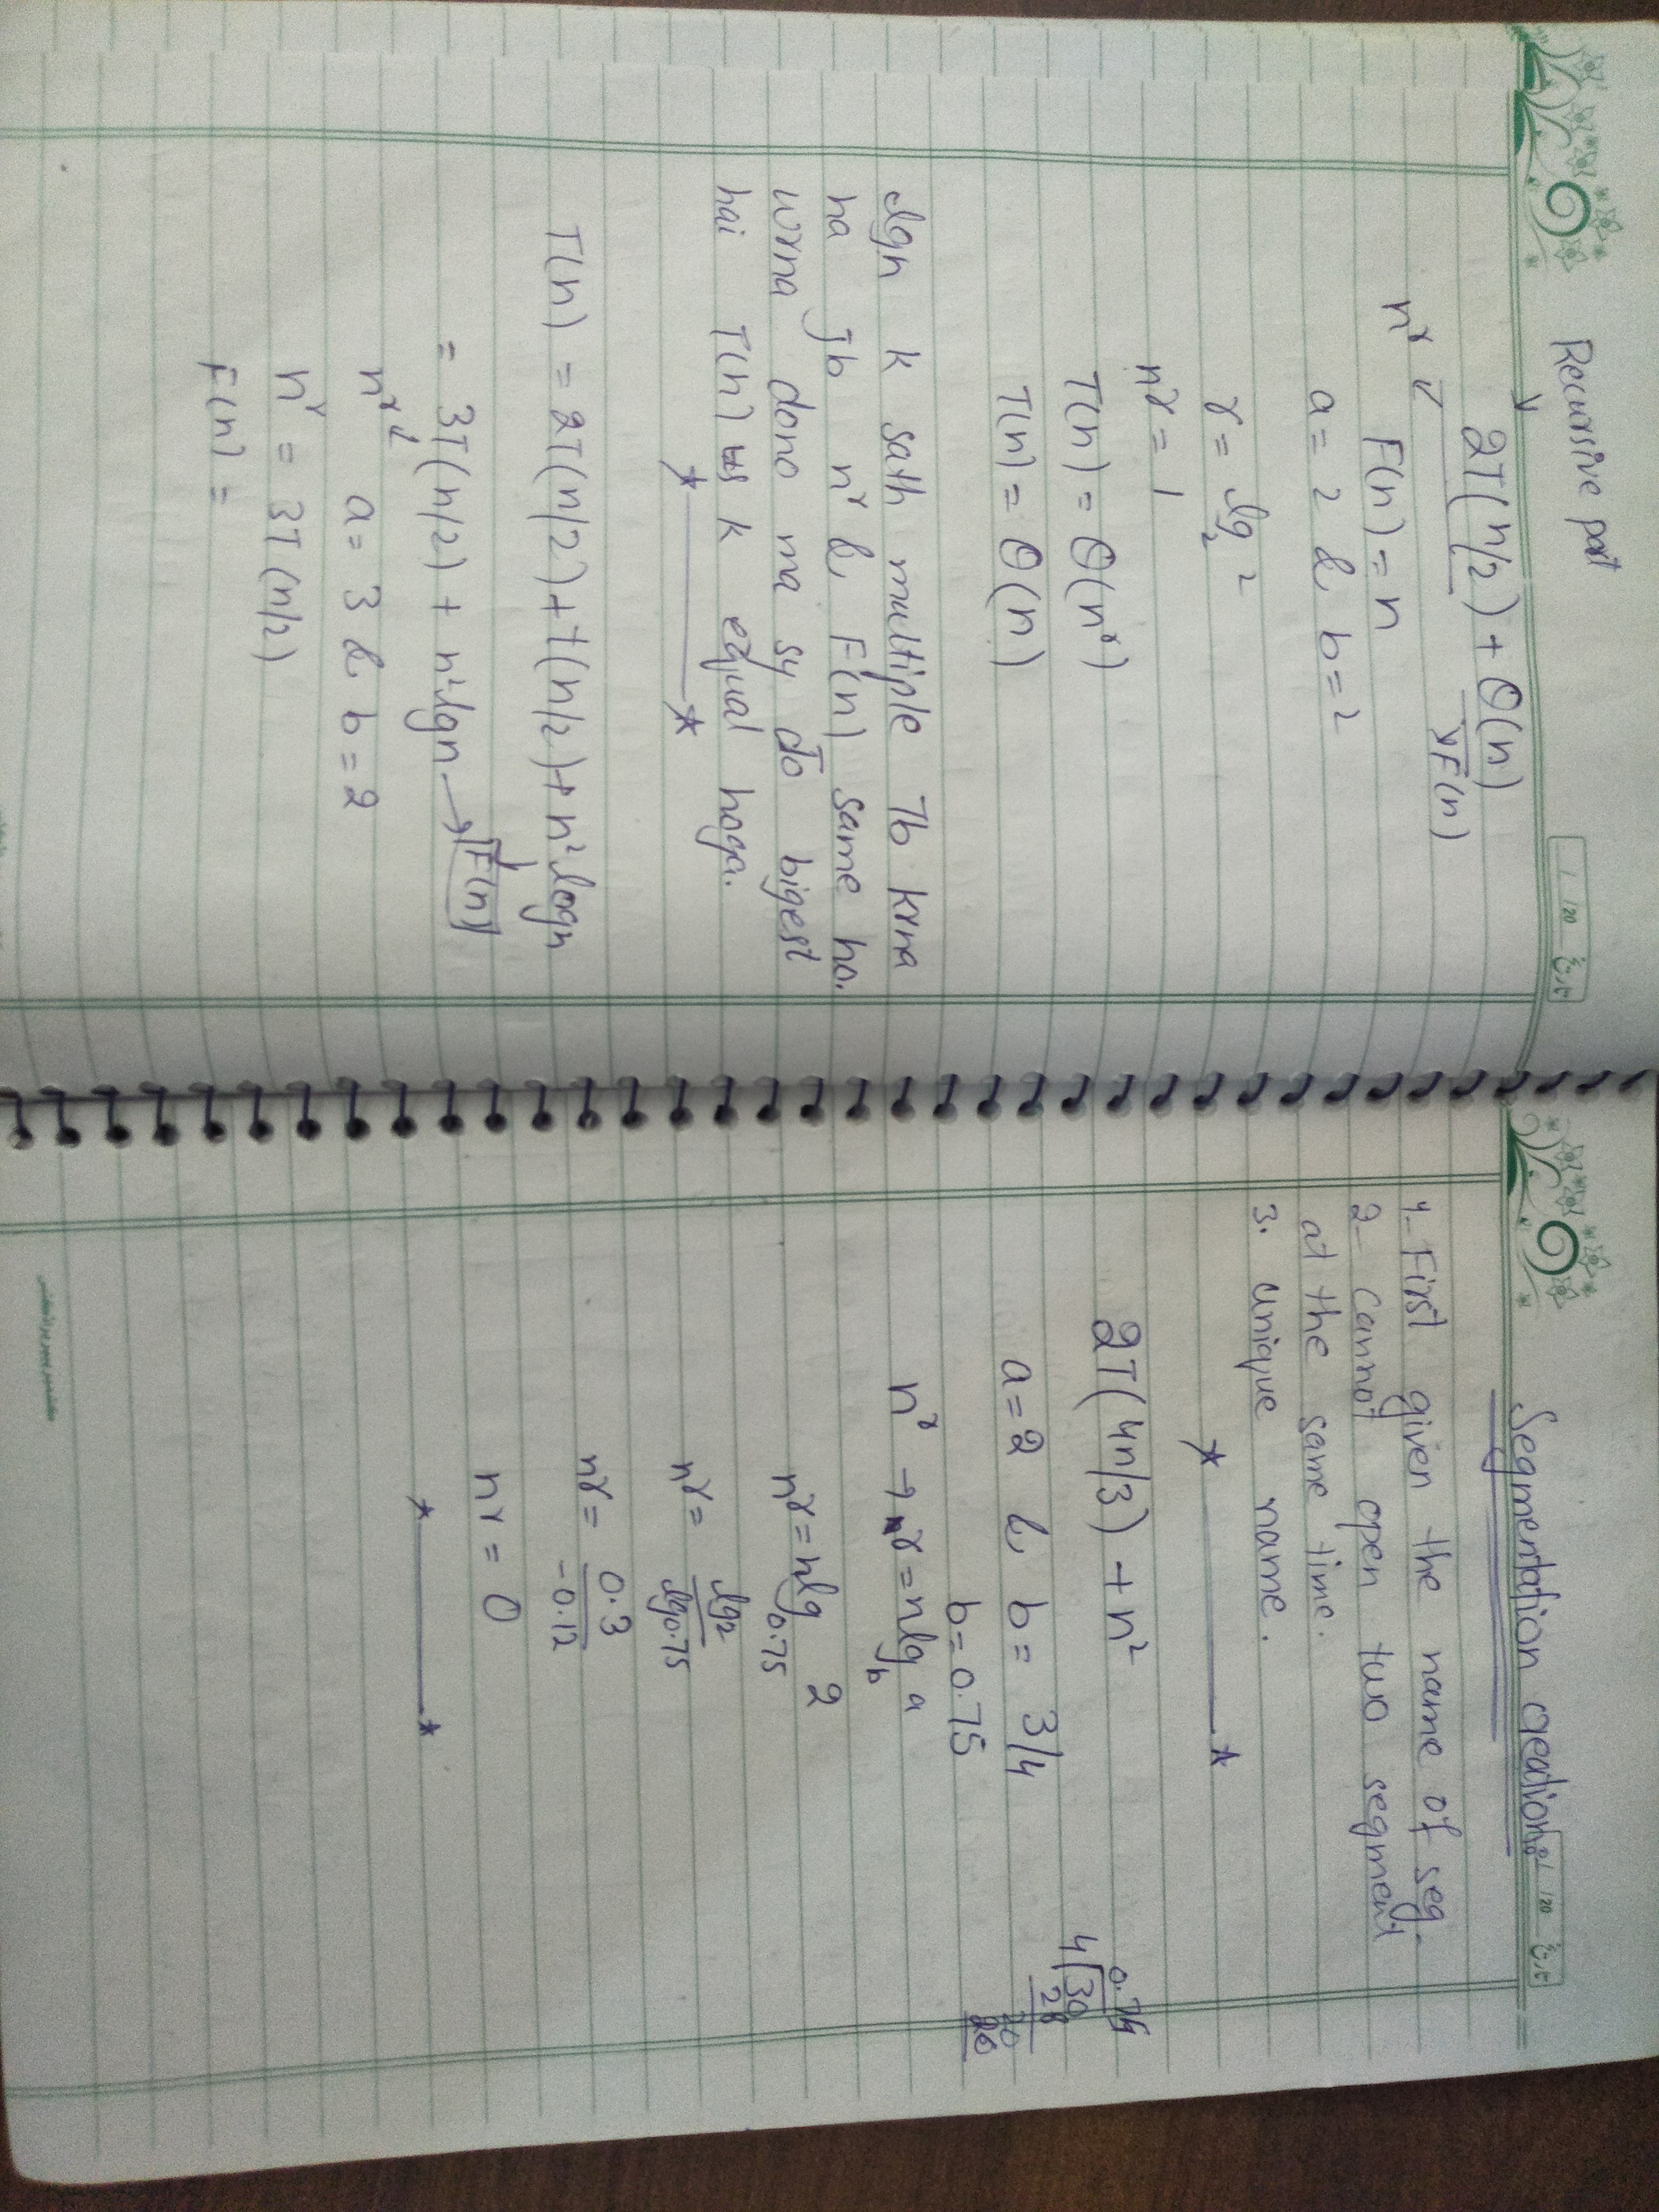 Recursive part
2T(n/2) + θ(n)
n^r F(n)
F(n) = n
a = 2 & b = 2
r = lg₂ 2
n^r = 1
T(n) = θ(n^r)
T(n) = θ(n)
lgn k sath multiple Tb krna
ha Jb n^r & F(n) same ho.
wrna dono ma sy Jo bigest
hai T(n) us k equal hoga.
T(n) = 2T(n/2) + t(n/2) + n² logn
= 3T(n/2) + n² lgn → F(n)
n^r a = 3 & b = 2
n^r = 3T(n/2)
F(n) =
Segmentation creation:
1- First given the name of seg.
2- cannot open two segment
at the same time.
3. unique name.
2T(4n/3) + n²
a = 2 & b = 3/4
b = 0.75
n^r → r = nlg_b a
n^r = nlg_0.75 2
n^r = lg2 / lg0.75
n^r = 0.3 / -0.12
n^r = 0
0.75
4 30
28
20
20